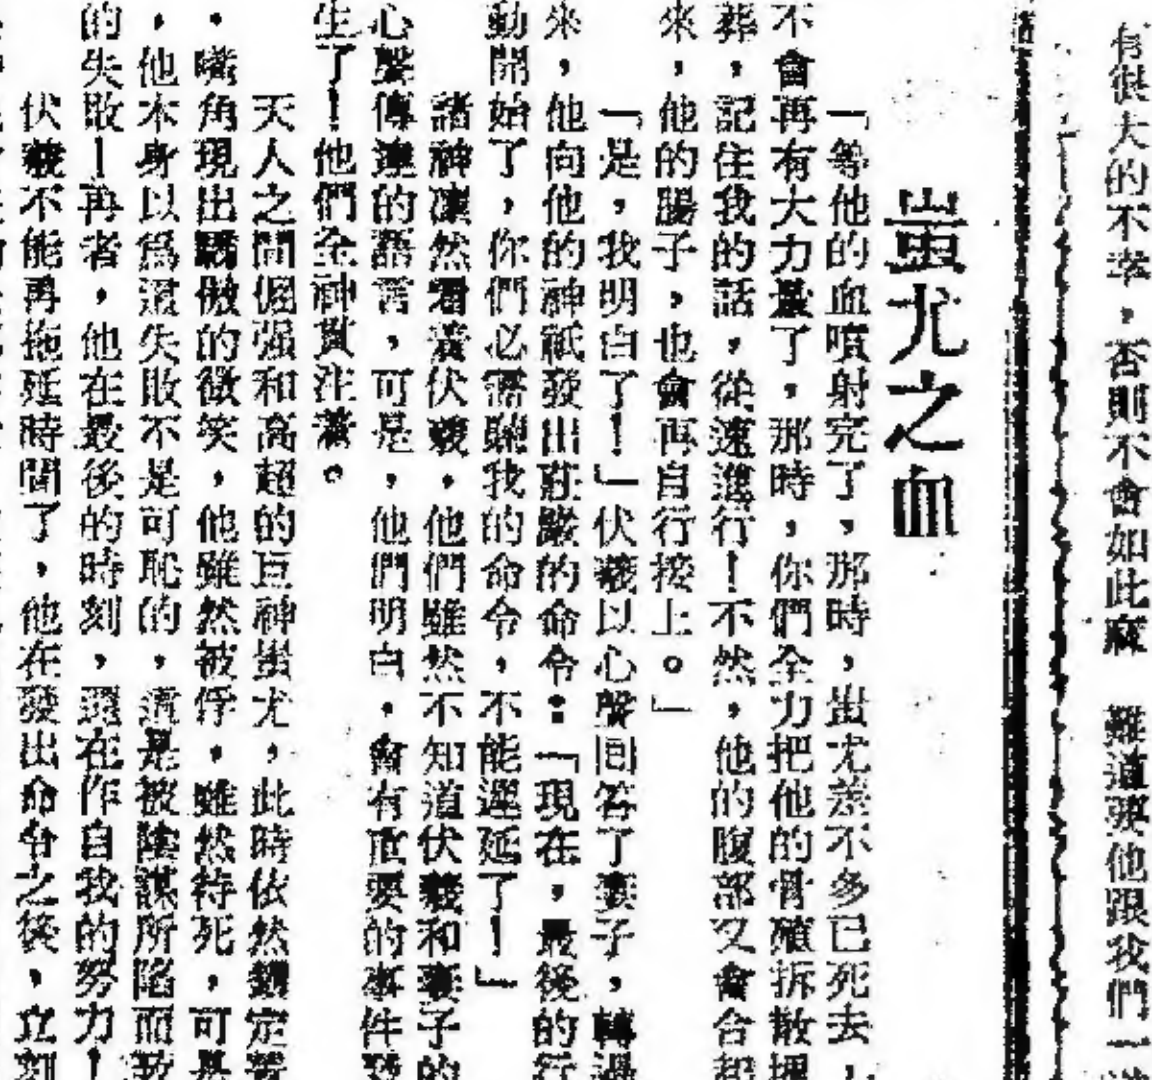 有很大的不幸，否則不會如此麻　難道要他跟我們一
蚩尤之血
「等他的血噴射完了，那時，蚩尤差不多已死去，
不會再有大力量了，那時，你們全力把他的骨殖拆散埋
葬，記住我的話，從速進行！不然，他的腹部又會合起
來，他的腸子，也會再自行接上。」
「是，我明白了！」伏羲以心聲回答了妻子，轉過
來，他向他的神祇發出莊嚴的命令：「現在，最後的行
動開始了，你們必需聽我的命令，不能遲延了！」
諸神凜然看着伏羲，他們雖然不知道伏羲和妻子的
心聲傳達的語言，可是，他們明白，會有重要的事件發
生了！他們全神貫注着。
天人之間倔强和高超的巨神蚩尤，此時依然鎮定着
，嘴角現出驕傲的微笑，他雖然被俘，雖然待死，可是
，他本身以爲這失敗不是可恥的，這是被陰謀所陷而致
的失敗！再者，他在最後的時刻，現在作自我的努力！
伏羲不能再拖延時間了，他在發出命令之後，立刻